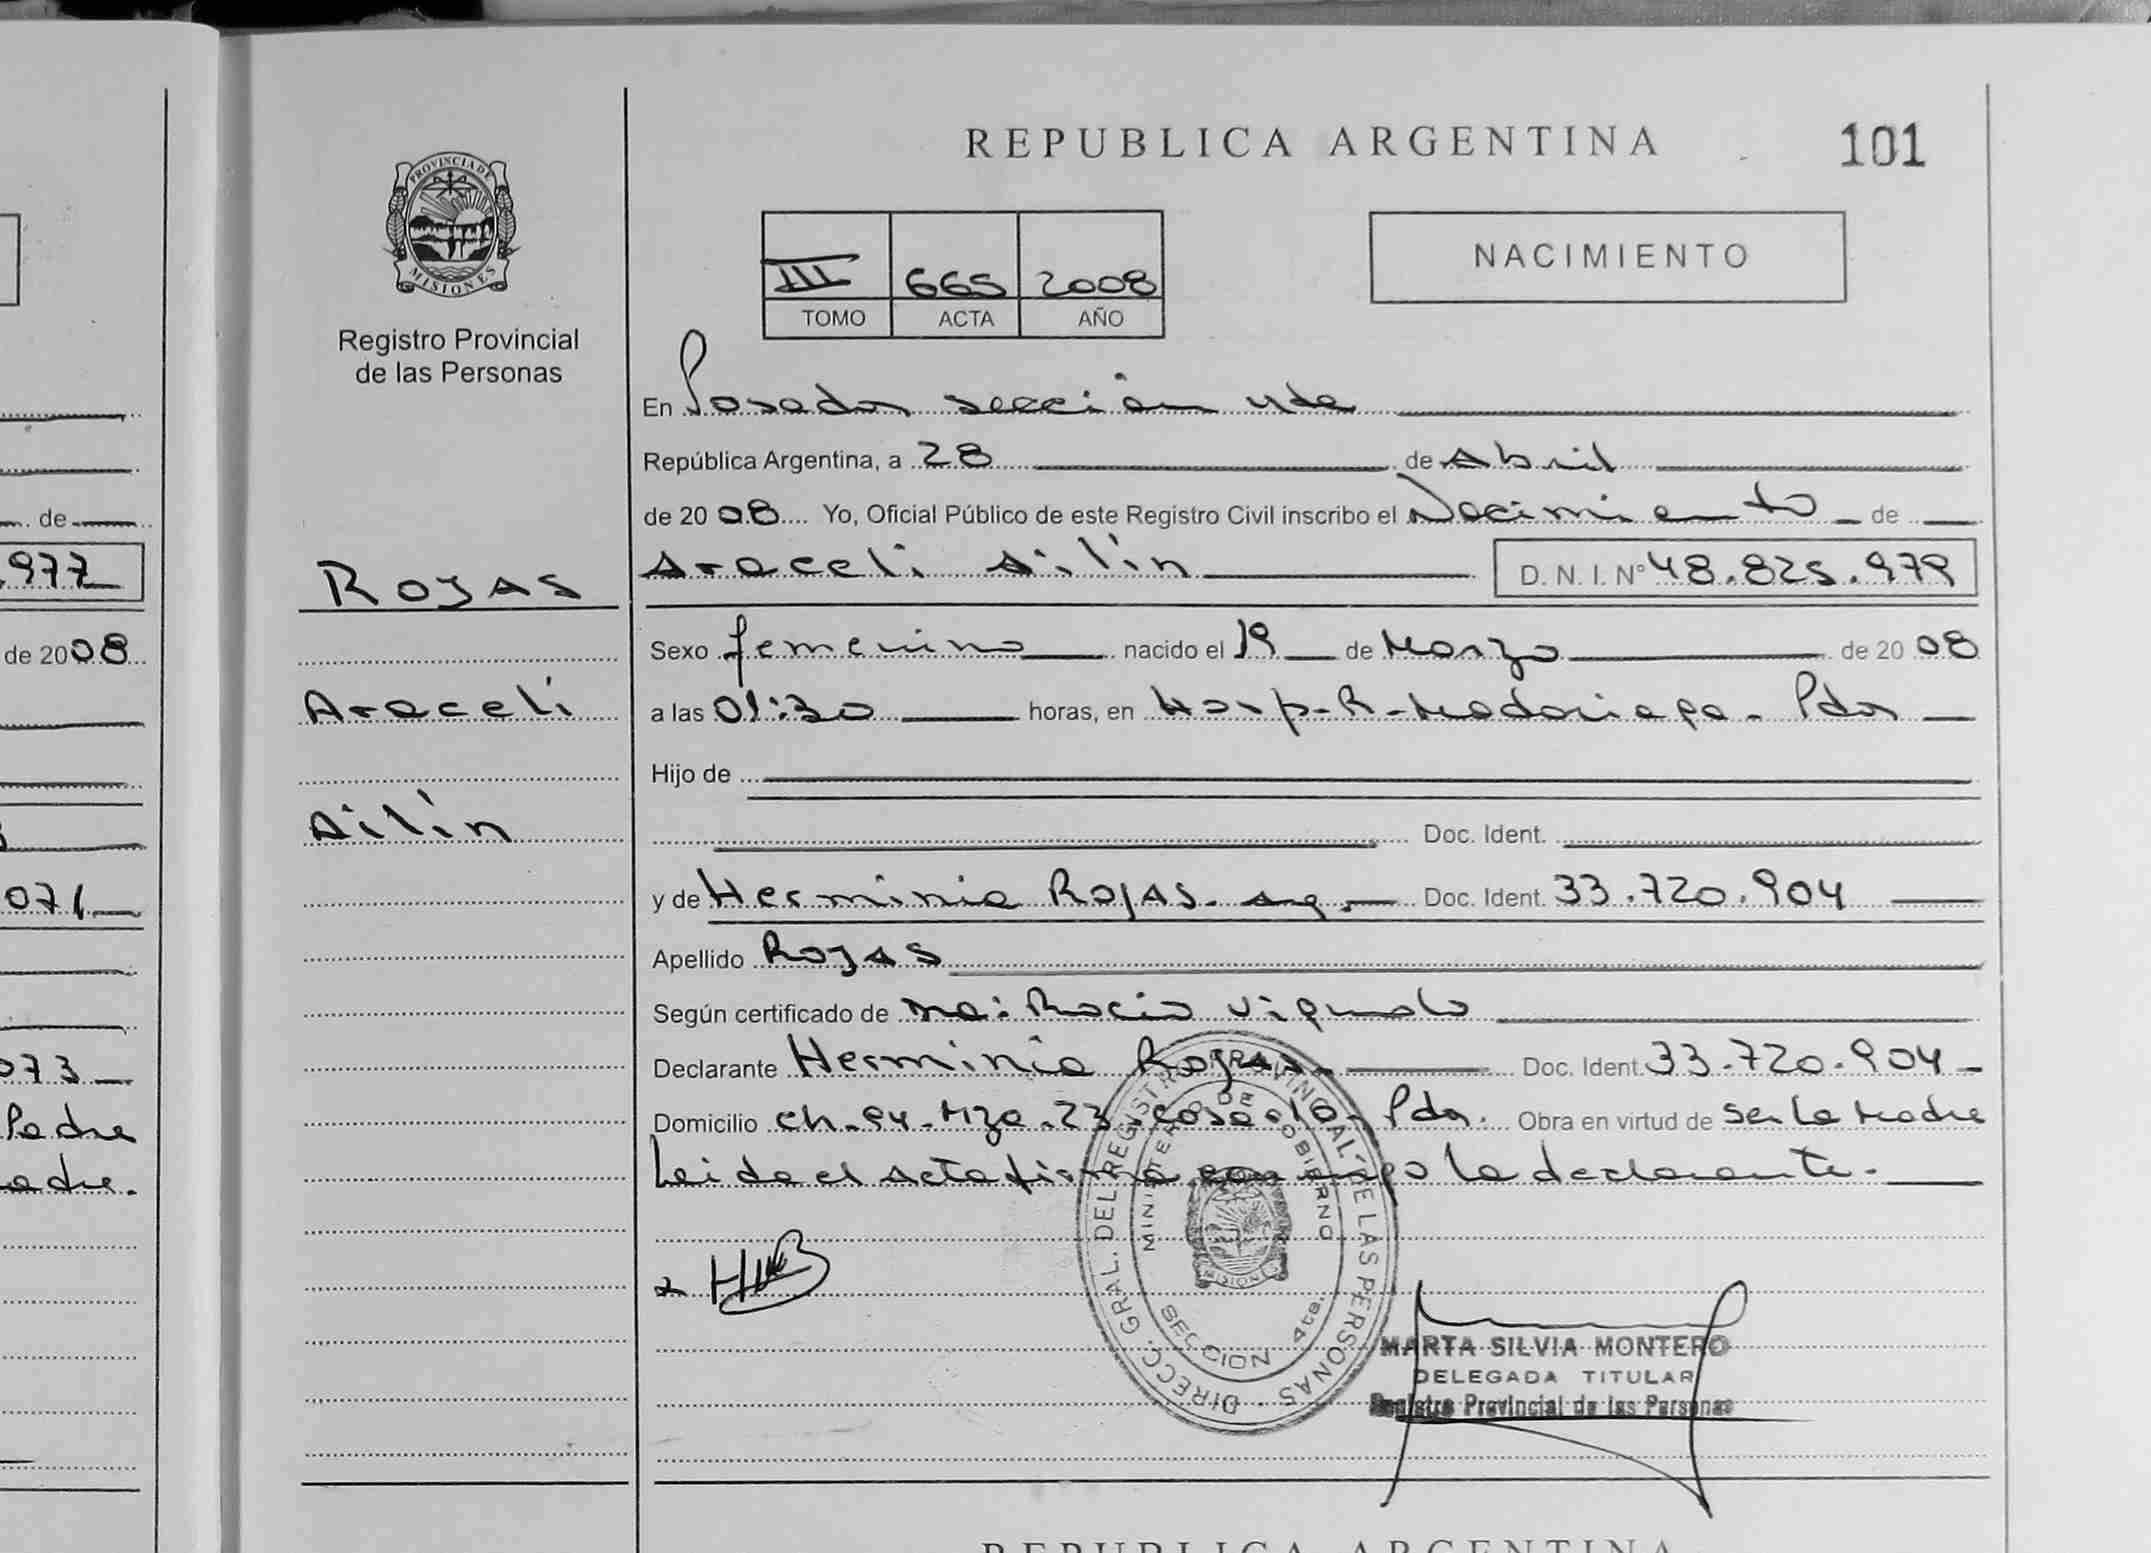 REPUBLICA ARGENTINA
101
PROVINCIA DE
MISIONES
Registro Provincial
de las Personas
III 665 2008
TOMO ACTA AÑO
NACIMIENTO
En Posadas sección 4ta
República Argentina, a 28 de Abril
de 2008 Yo, Oficial Público de este Registro Civil inscribo el Nacimiento de
ROJAS
Araceli Ailín D. N. I. Nº 48.825.979
Sexo femenino nacido el 19 de Marzo de 2008
Araceli
a las 01:30 horas, en Hosp. R. Madariaga. Pdas
Hijo de
Ailín
Doc. Ident.
y de Herminia ROJAS. arg. Doc. Ident. 33.720.904
Apellido ROJAS
Según certificado de Ma: Rocio
Declarante Herminia Rojas Doc. Ident. 33.720.904
Domicilio ch. 94. Mza. 23. casa. 10. Pdas. Obra en virtud de ser la Madre
Leida el acta firma conmigo la declarante.
DIRECC. GRAL. DEL REGISTRO PROVINCIAL DE LAS PERSONAS
MINISTERIO DE GOBIERNO
MISIONES
SECCION 4ta.
MARTA SILVIA MONTERO
DELEGADA TITULAR
Registro Provincial de las Personas
REPUBLICA ARGENTINA
de
977
de 2008
071
073
Padre
adre.